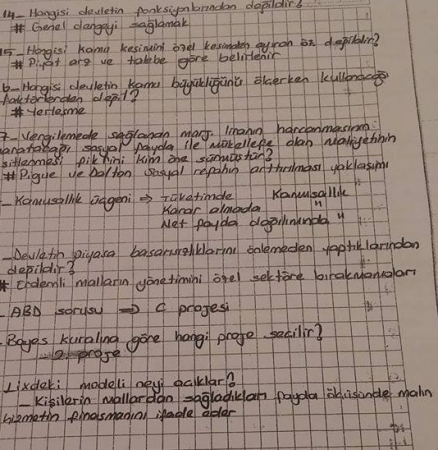 14- Hangisi devletin fonksiyonlarından değildir?
# Genel dengeyi sağlamak
15- Hangisi kamu kesimini özel kesimden ayıran öz. değildir?
# Fiyat arz ve talebe göre belirlenir
Hangisi devletin kamu büyüklüğünü ölçerken kullanacağı
faktörlerden değil?
# Yerleşme
7- Vergilemede sağlanan marj. liranın harcanmasının
sosyal fayda ile mükellefe olan maliyetinin
fikrini kim öne sürmüştür?
# Pigue ve Dalton Sosyal refahın arttırılması yaklaşımı
- Kamusallık üçgeni => Tüketimde Kamusallık
Karar almada "
Net fayda dağılımında "
- Devletin piyasa başarısızlıklarını önlemeden yaptıklarından
değildir?
# Erdemli malların yönetimini özel sektöre bırakmamaları
- ABD sorusu => C projesi
- Bayes kuralına göre hangi proje seçilir?
- 2 proje
Lixdeki modeli neyi açıklar?
- Kişilerin mallardan sağladıkları fayda ölçüsünde malın
hizmetin finasmanını ifade eder